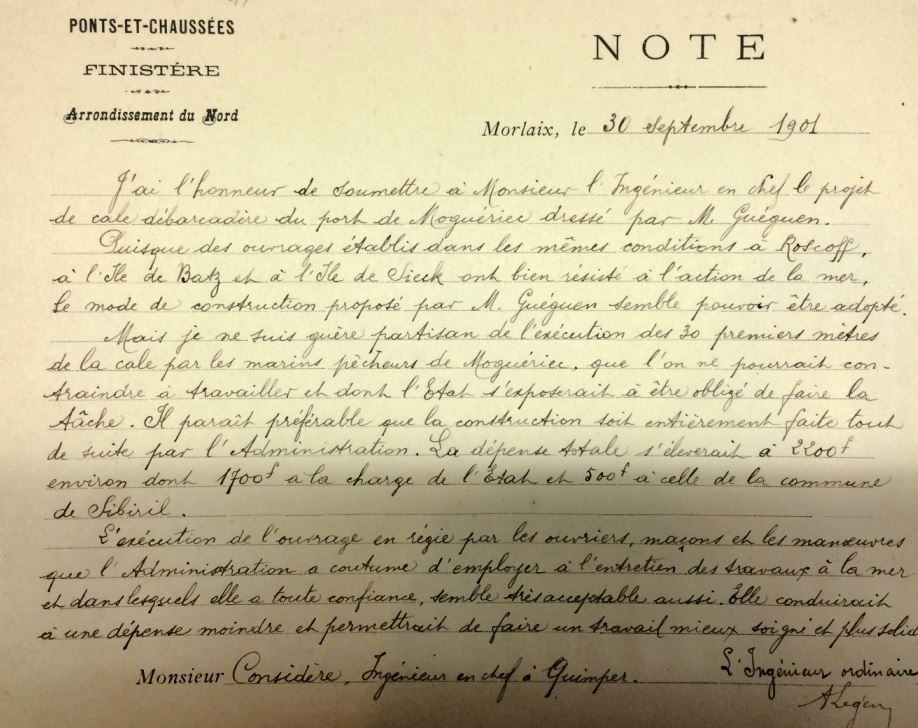 PONTS-ET-CHAUSSÉES
FINISTÉRE
Arrondissement du Nord
NOTE
Morlaix, le 30 septembre 1901
J'ai l'honneur de soumettre à Monsieur l'Ingénieur en chef le projet
de cale débarcadère du port de Moguériec dressé par M. Guéguen.
Puisque des ouvrages établis dans les mêmes conditions à Roscoff,
à l'Ile de Batz et à l'Ile de Sieck ont bien résisté à l'action de la mer,
le mode de construction proposé par M. Guéguen semble pouvoir être adopté.
Mais je ne suis guère partisan de l'exécution des 30 premiers mètres
de la cale par les marins pêcheurs de Moguériec, que l'on ne pourrait con-
traindre à travailler et dont l'Etat s'exposerait à être obligé de faire la
tâche. Il paraît préférable que la construction soit entièrement faite tout
de suite par l'Administration. La dépense totale s'éleverait à 2200f
environ dont 1700f a la charge de l'État et 500f à celle de la commune
de Sibiril.
L'exécution de l'ouvrage en régie par les ouvriers, maçons et les manœuvres
que l'Administration a coutume d'employer à l'entretien des travaux à la mer
et dans lesquels elle a toute confiance, semble très acceptable aussi. Elle conduirait
à une dépense moindre et permettrait de faire un travail mieux soigné et plus solid
Monsieur Considère, Ingénieur en chef à Quimper.
L'Ingénieur ordinaire